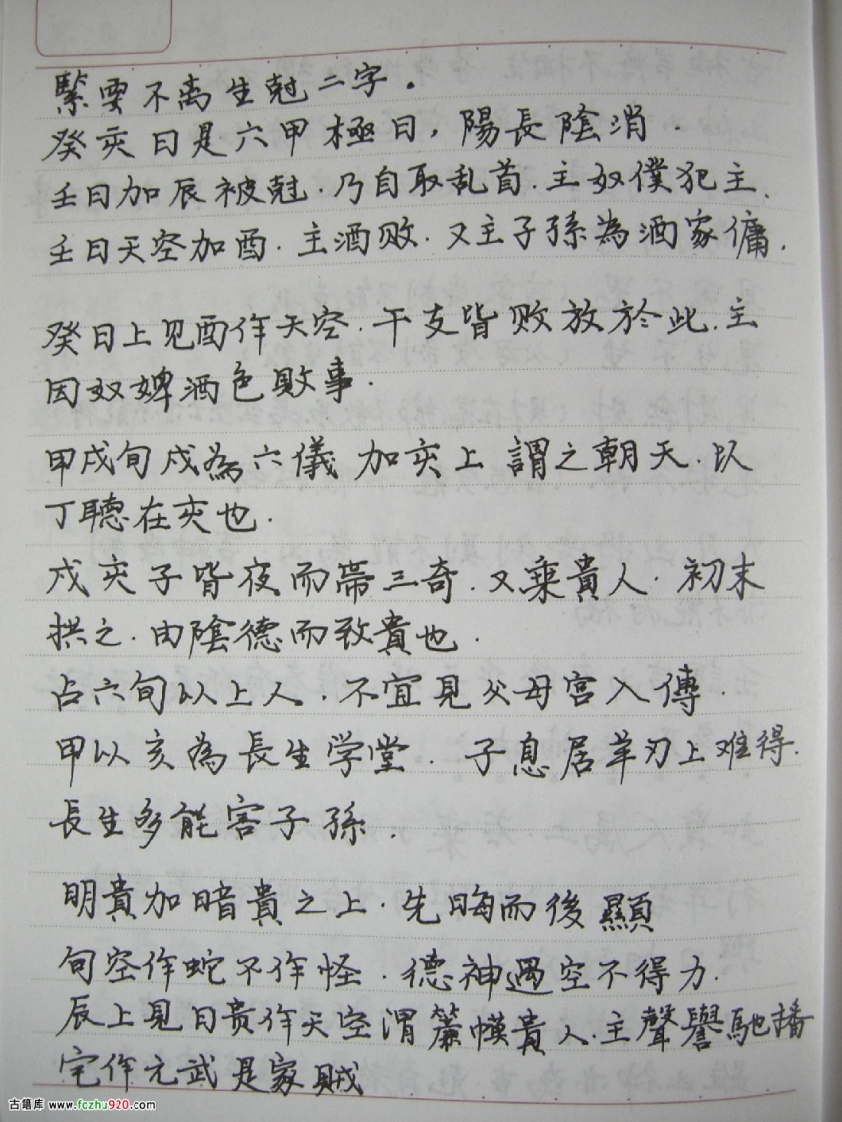 緊要不离生尅二字.
癸亥日是六甲極日,陽長陰消.
壬日加辰被尅.乃自取乱首.主奴僕犯主.
壬日天空加酉.主酒败.又主子孫為酒家傭.
癸日上见酉作天空.干支皆败放於此.主
因奴婢酒色敗事.
甲戌旬戌為六儀加亥上謂之朝天.以
丁聽在亥也.
戌亥子皆夜而帶三奇.又乘貴人.初末
拱之.由陰德而致貴也.
占六旬以上人.不宜見父母宮入傳.
甲以亥為長生学堂.子息居羊刃上难得.
長生多能害子孫.
明貴加暗貴之上.先晦而後顯
旬空作蛇不作怪.德神遇空不得力.
辰上見日贵作天空謂簾幙貴人.主聲譽馳播
宅作元武是家賊
古籍库 www.fczhu920.com